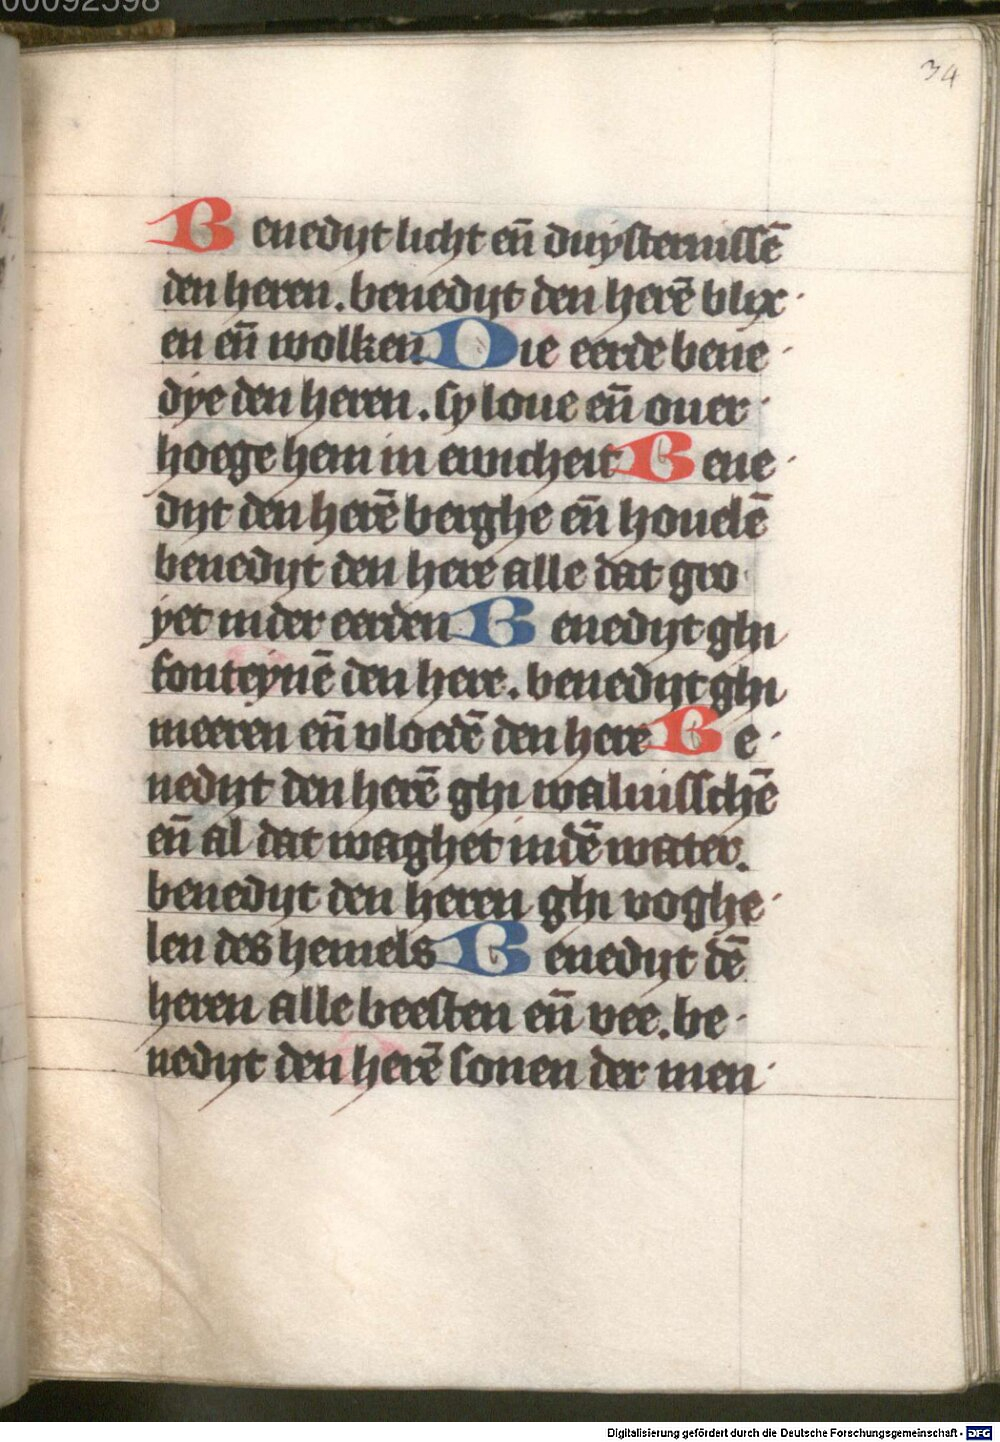 00092598
34
Benedijt licht eñ duysternissē
den heren. benedijt den herē blix
en eñ wolken Die eerde bene
dye den heren. sy loue eñ ouer
hoege hem in ewicheit Bene
dijt den herē berghe eñ houelē
benedijt den here alle dat gro
yet inder eerden Benedijt ghi
fonteynē den here. benedijt ghi
meeren eñ vloedē den here Be
nedijt den herē ghi waluisschē
eñ al dat waghet indē water.
benedijt den heren ghi voghe
len des hemels Benedijt dē
heren alle beesten eñ vee. be
nedijt den herē sonen der men
Digitalisierung gefördert durch die Deutsche Forschungsgemeinschaft - DFG